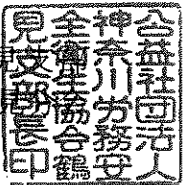 公益社団法人
神奈川労務安
全衛生協会鶴
見支部長印